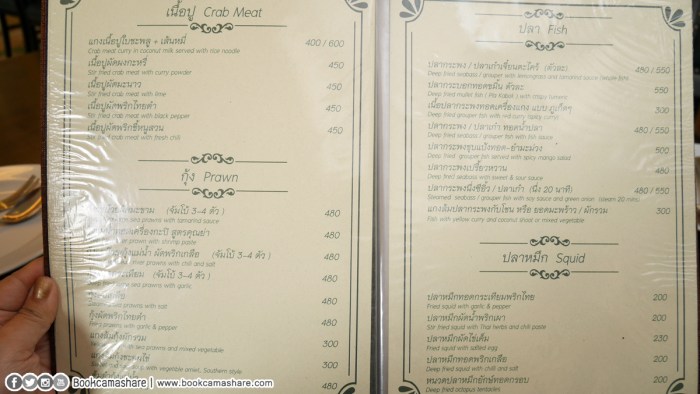 เนื้อปู Crab Meat
แกงเนื้อปูใบชะพลู + เส้นหมี่ 400 / 600
Crab meat curry in coconut milk served with rice noodle
เนื้อปูผัดผงกะหรี่ 450
Stir fried crab meat with curry powder
เนื้อปูผัดมะนาว 450
Stir fried crab meat with lime
เนื้อปูผัดพริกไทยดำ 450
Stir fried crab meat with black pepper
เนื้อปูผัดพริกขี้หนูสวน 450
Stir fried crab meat with fresh chili
กุ้ง Prawn
มะขาม (จัมโบ้ 3-4 ตัว) 480
sea prawns with tamarind sauce
ทอดเครื่องกะปิ สูตรคุณย่า 480
prawn with shrimp paste
กุ้งแม่น้ำ ผัดพริกเกลือ (จัมโบ้ 3-4 ตัว) 480
river prawns with chili and salt
กระเทียม (จัมโบ้ 3-4 ตัว) 480
sea prawns with garlic
480
prawns with salt
กุ้งผัดพริกไทยดำ 480
prawns with garlic & pepper
แกงส้มกุ้งผักรวม 300
sea prawns and mixed vegetable
300
with vegetable, Southern style
480
ปลา Fish
ปลากะพง / ปลาเก๋าเจี๋ยนตะไคร้ (ตัวละ) 480 / 550
Deep fried seabass / grouper with lemongrass and tamarind sauce (whole fish)
ปลากระบอกทอดขมิ้น ตัวละ 550
Deep fried mullet fish ( Pla Kabok ) with crispy tumeric
เนื้อปลากะพงทอดเครื่องแกง แบบภูเก็ตๆ 300
Deep fried grouper fish with red curry (spicy curry)
ปลากะพง / ปลาเก๋า ทอดน้ำปลา 480 / 550
Deep fried seabass / grouper with fish sauce
ปลากะพงชุบแป้งทอด-ยำมะม่วง 500
Deep fried grouper fish served with spicy mango salad
ปลากะพงเปรี้ยวหวาน 480
Deep fried seabass with sweet & sour sauce
ปลากะพงนึ่งซีอิ๊ว / ปลาเก๋า (นึ่ง 20 นาที) 480 / 550
Steamed seabass / grouper fish with soy sauce and green onion (steam 20 min)
แกงส้มปลากะพงกับไชน หรือ ยอดมะพร้าว / ผักรวม 300
Fish with yellow curry and coconut shoot or mixed vegetable
ปลาหมึก Squid
ปลาหมึกทอดกระเทียมพริกไทย 200
Fried squid with garlic & pepper
ปลาหมึกผัดน้ำพริกเผา 200
Stir fried squid with Thai herbs and chili paste
ปลาหมึกผัดไข่เค็ม 230
Fried squid with salted egg
ปลาหมึกทอดพริกเกลือ 200
Deep fried squid with chili and salt
หนวดปลาหมึกยักษ์ทอดกรอบ 200
Deep fried octopus tentacles
Bookcamashare | www.bookcamashare.com